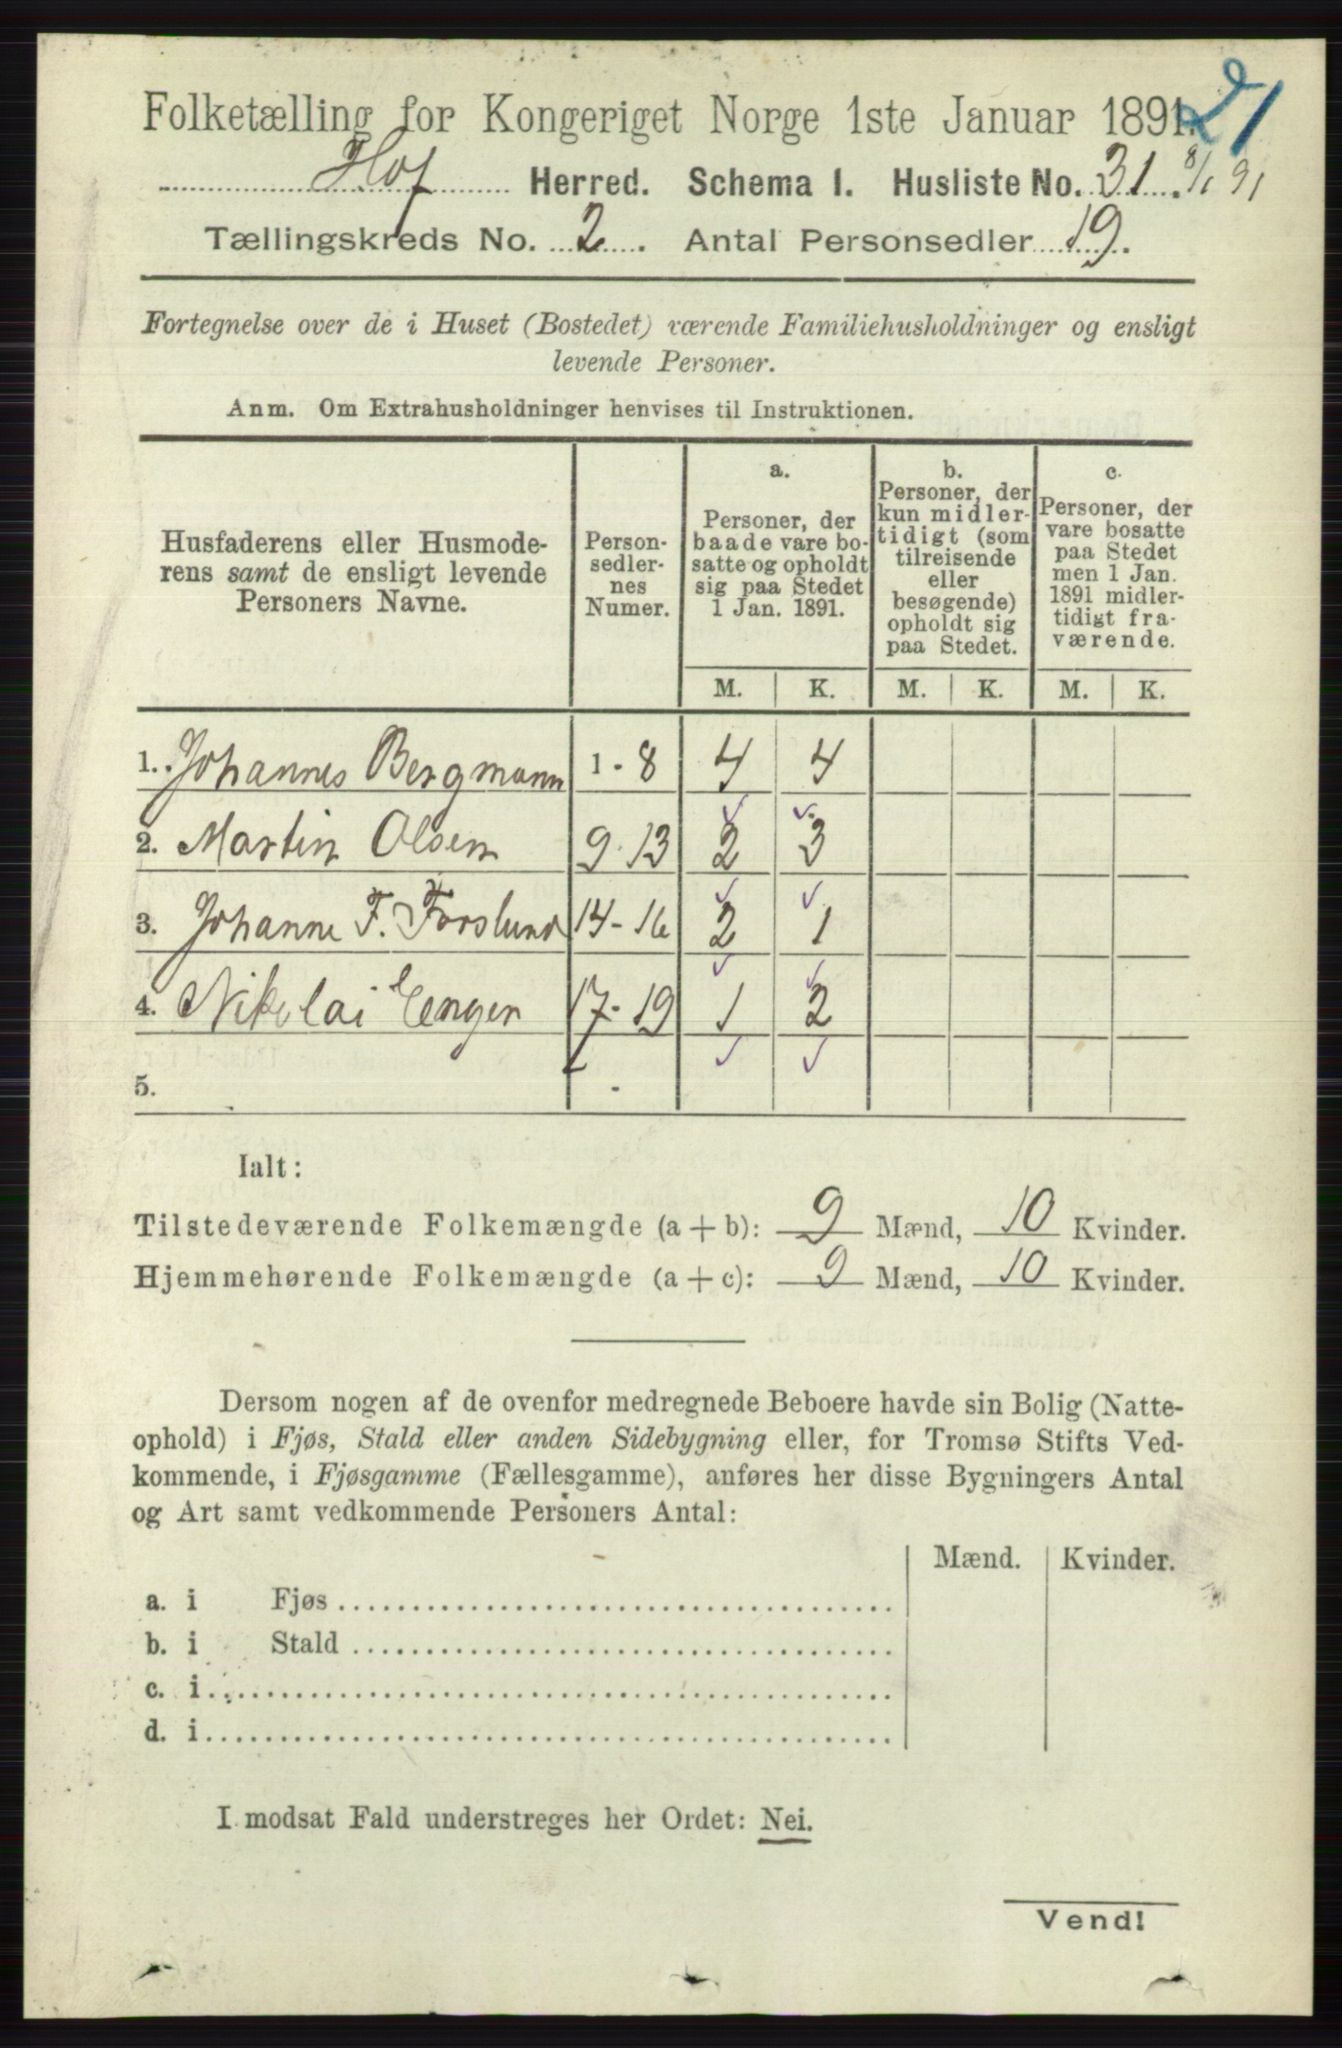 Folketælling for Kongeriget Norge 1ste Januar 1891. 21
Hof Herred. Schema 1. Husliste No. 31. 8/1 91
Tællingskreds No. 2. Antal Personsedler 19.
Fortegnelse over de i Huset (Bostedet) værende Familiehusholdninger og ensligt
levende Personer.
Anm. Om Extrahusholdninger henvises til Instruktionen.
Husfaderens eller Husmode-
rens samt de ensligt levende
Personers Navne.
Person-
sedler-
nes
Numer.
a.
Personer, der
baade vare bo-
satte og opholdt
sig paa Stedet
1 Jan. 1891.
b.
Personer, der
kun midler-
tidigt (som
tilreisende
eller
besøgende)
opholdt sig
paa Stedet.
c.
Personer, der
vare bosatte
paa Stedet
men 1 Jan.
1891 midler-
tidigt fra-
værende.
M. K. M. K. M. K.
1. Johannes Bergmann 1 - 8 4 4
2. Martin Olsen 9 - 13 2 3
3. Johanne F. Forslund 14 - 16 2 1
4. Nikolai Enger 17 - 19 1 2
5. -
Ialt:
Tilstedeværende Folkemængde (a + b): 9 Mænd, 10 Kvinder.
Hjemmehørende Folkemængde (a + c): 9 Mænd, 10 Kvinder.
Dersom nogen af de ovenfor medregnede Beboere havde sin Bolig (Natte-
ophold) i Fjøs, Stald eller anden Sidebygning eller, for Tromsø Stifts Ved-
kommende, i Fjøsgamme (Fællesgamme), anføres her disse Bygningers Antal
og Art samt vedkommende Personers Antal:
Mænd. Kvinder.
a. i Fjøs
b. i Stald
c. i
d. i
I modsat Fald understreges her Ordet: Nei.
Vend!